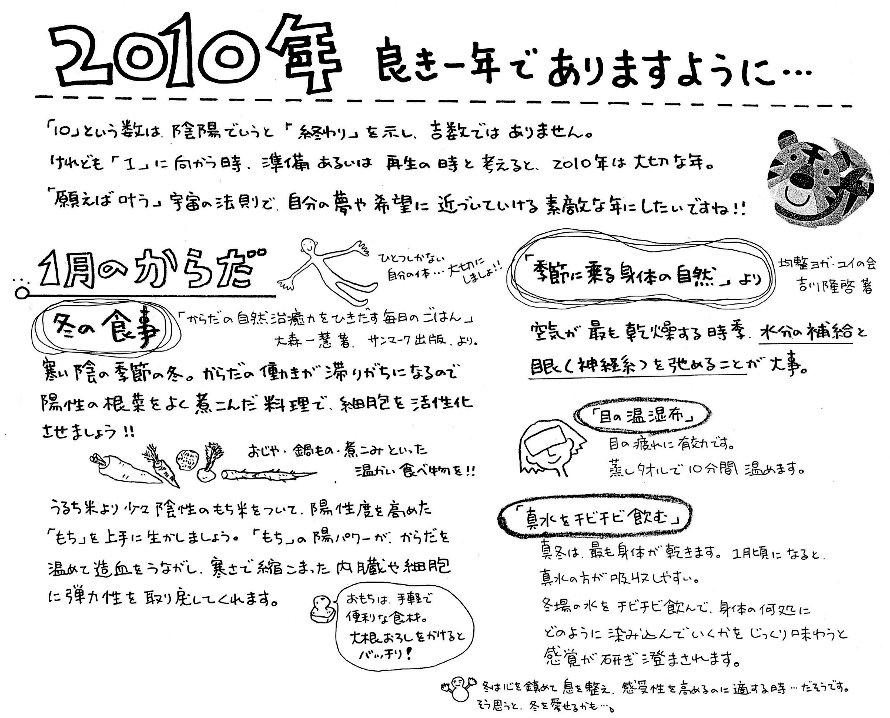 2010年 良き一年でありますように…
「10」という数は、陰陽でいうと「終わり」を示し、吉数ではありません。
けれども「1」に向かう時、準備あるいは再生の時と考えると、2010年は大切な年。
「願えば叶う」宇宙の法則で、自分の夢や希望に近づいていける素敵な年にしたいですね!!
1月のからだ
ひとつしかない
自分の体…大切に
しましょ!!
冬の食事
「からだの自然治癒力をひきだす毎日のごはん」
大森一慧著、サンマーク出版、より。
寒い陰の季節の冬。からだの働きが滞りがちになるので
陽性の根菜をよく煮こんだ料理で、細胞を活性化
させましょう!!
おじや・鍋もの・煮こみといった
温かい食べ物を!!
うるち米より少々陰性のもち米をついて、陽性度を高めた
「もち」を上手に生かしましょう。「もち」の陽パワーが、からだを
温めて造血をうながし、寒さで縮こまった内臓や細胞
に弾力性を取り戻してくれます。
おもちは、手軽で
便利な食材。
大根おろしをかけると
バッチリ!
「季節に乗る身体の自然」より
均整ヨガ・ユイの会
吉川隆啓著
空気が最も乾燥する時季、水分の補給と
眠く(神経系)を弛めることが大事。
「目の温湿布」
目の疲れに有効です。
蒸しタオルで10分間温めます。
「真水をチビチビ飲む」
真冬は、最も身体が乾きます。1月頃になると、
真水の方が吸収しやすい。
冬場の水をチビチビ飲んで、身体の何処に
どのように染み込んでいくかをじっくり味わうと
感覚が研ぎ澄まされます。
冬は心を鎮めて息を整え、感受性を高めるのに適する時…だそうです。
そう思うと、冬を愛せるかも…。